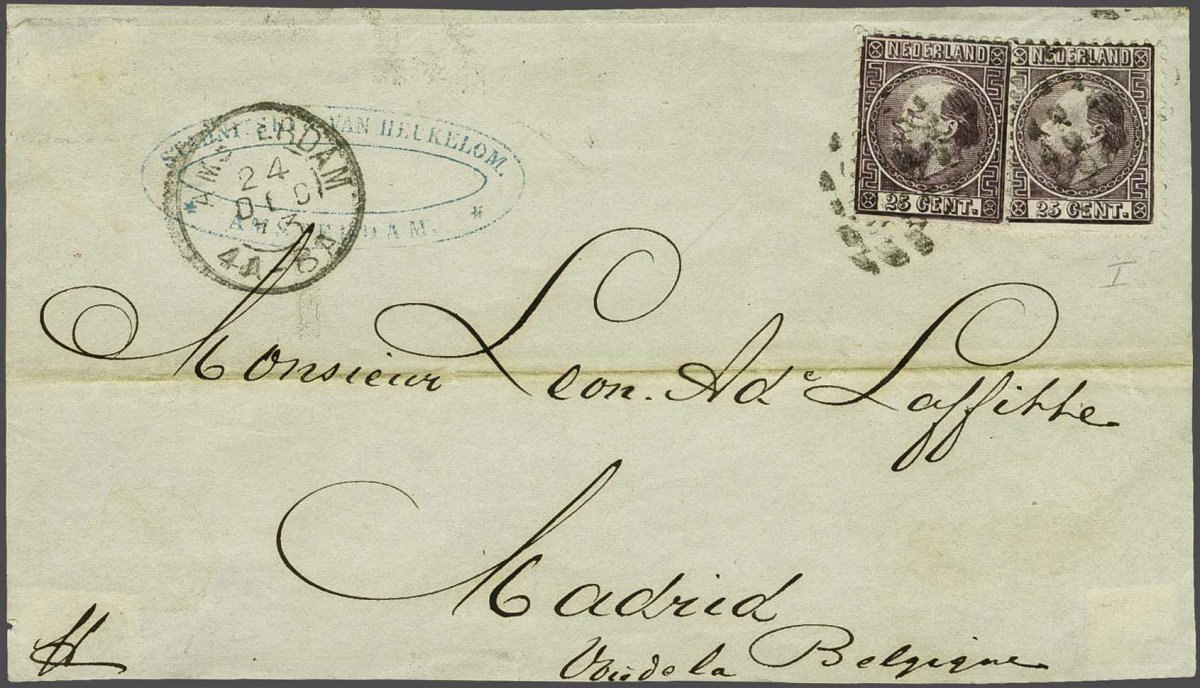 NEDERLAND
NEDERLAND
25 CENT.
25 CENT.
VAN HEUKELOM.
AMSTERDAM.
AMSTERDAM
24
DEC
73
4A-8A
I
Monsieur Leon. Ade Laffitte
Madrid
Voie de la Belgique